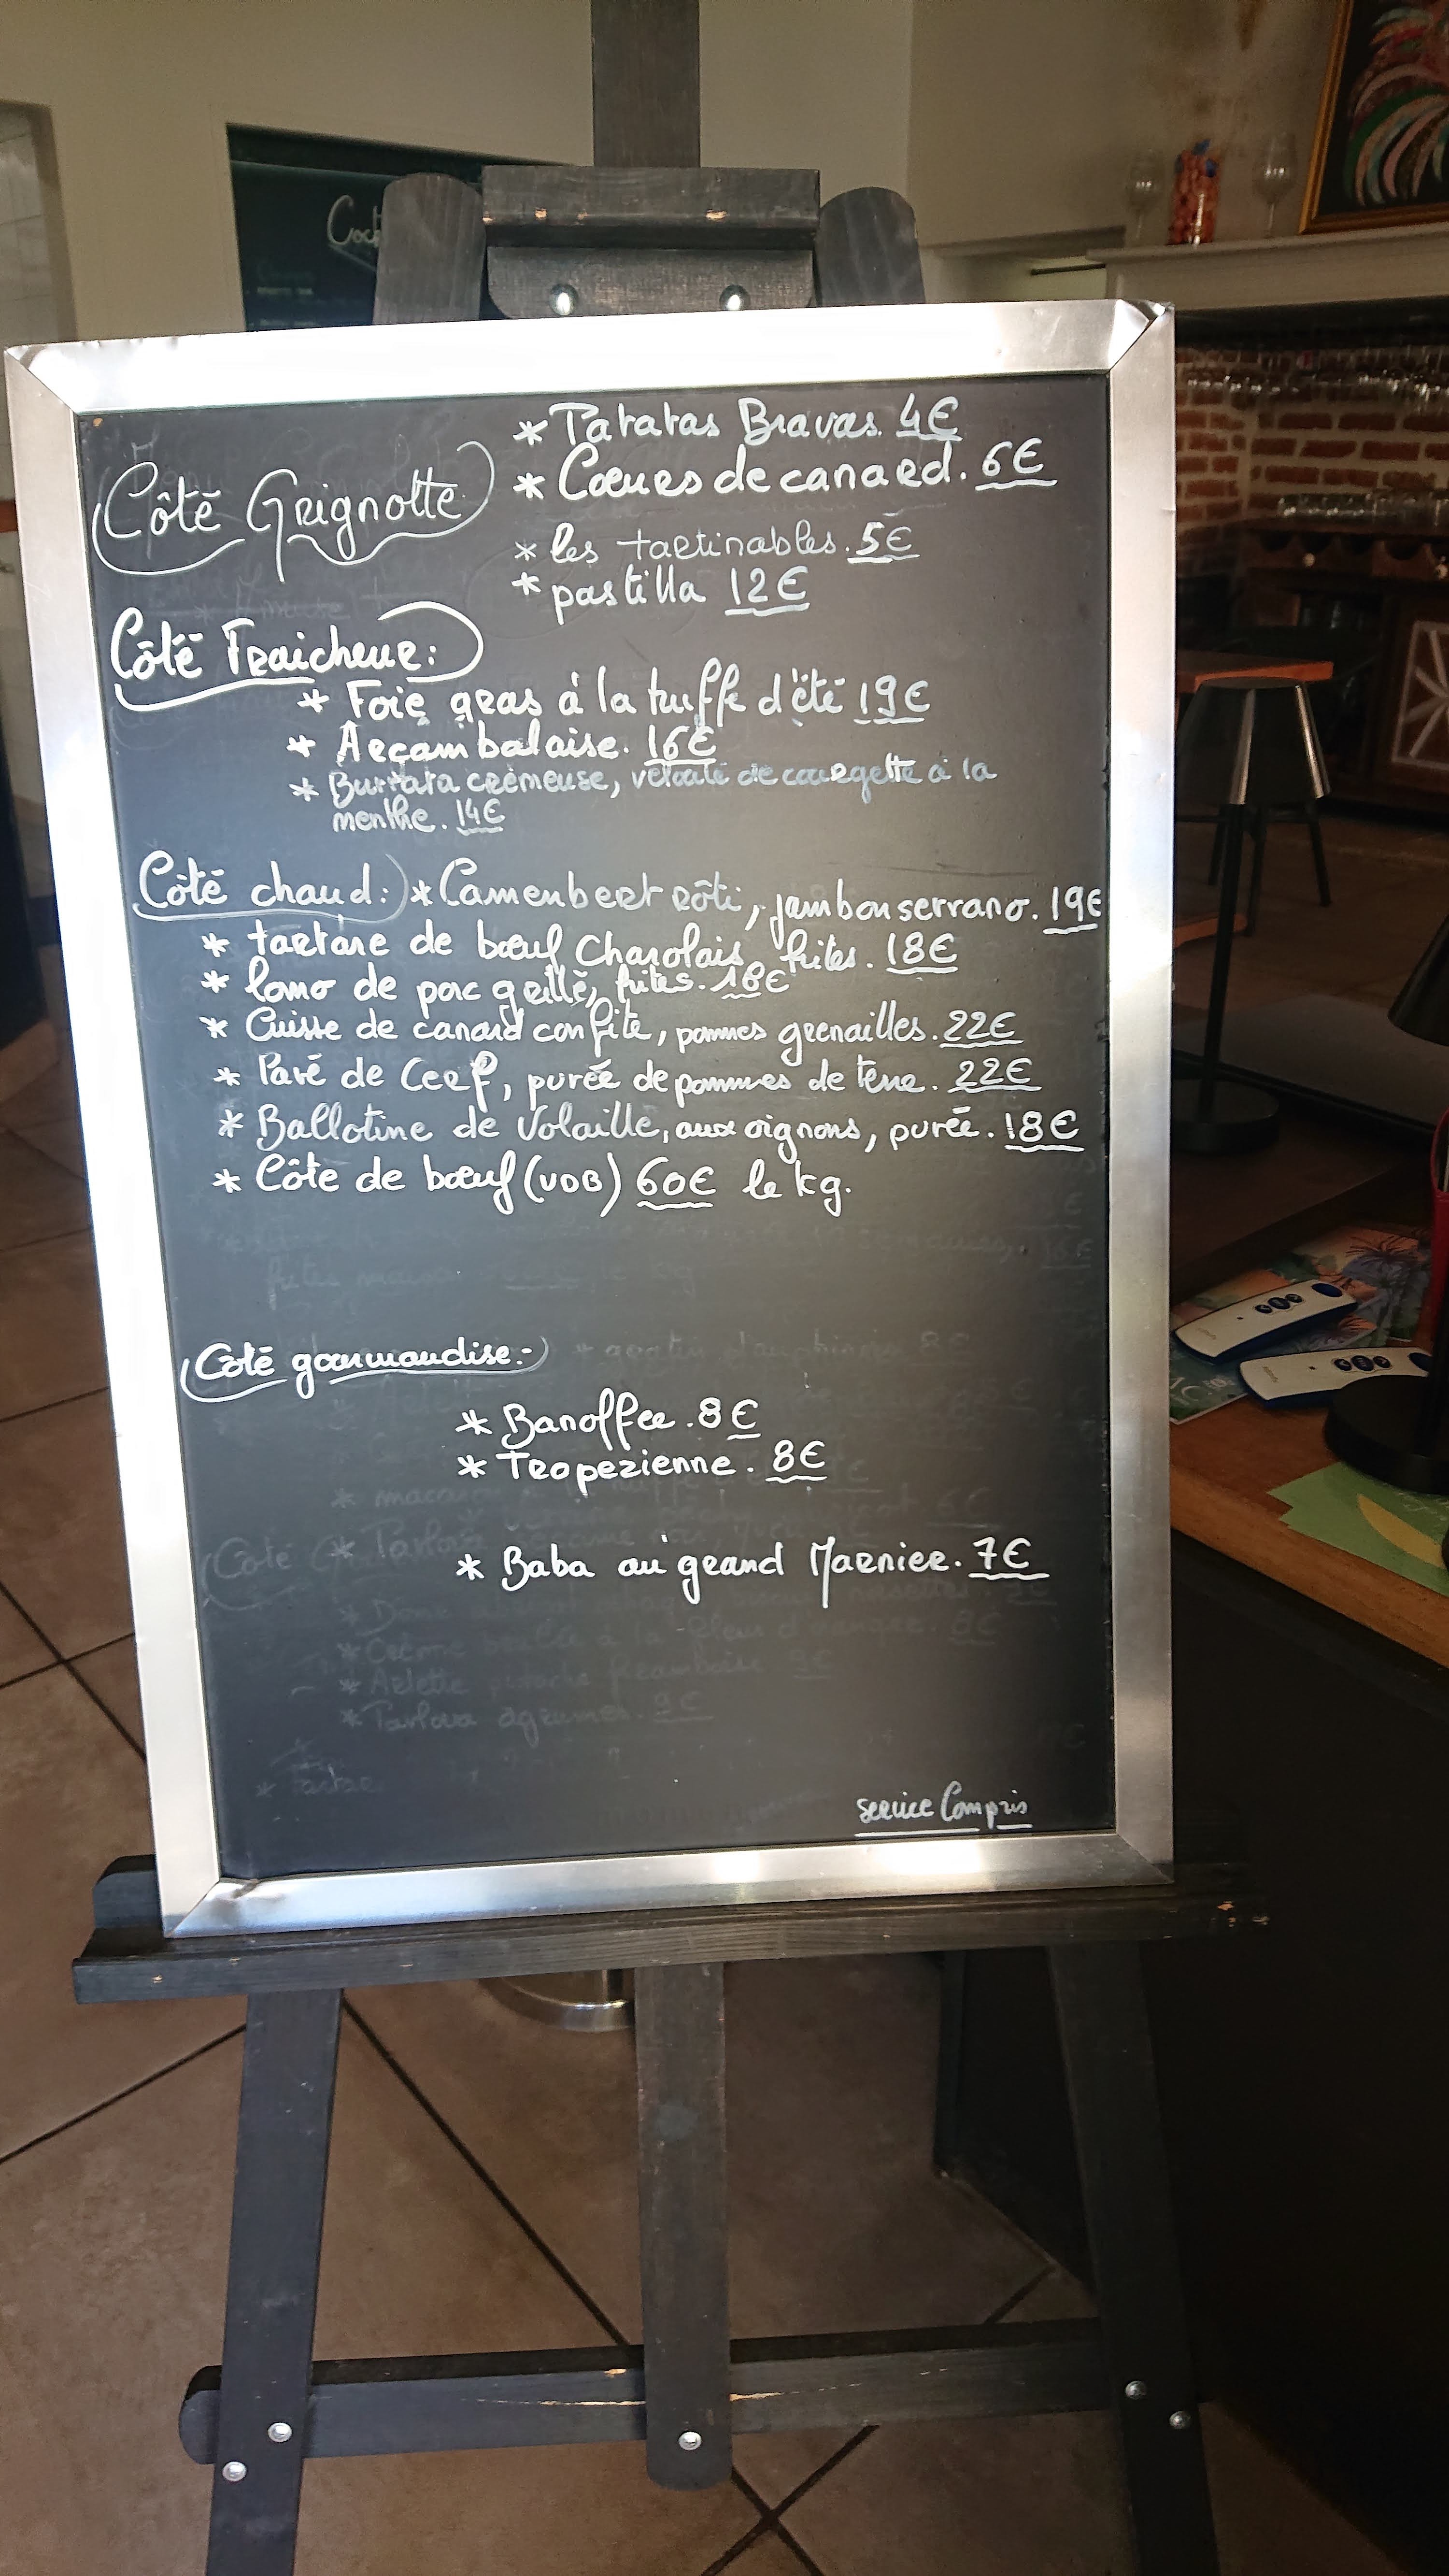 Cock
* Patatas Bravas. 4€
Côté Grignotte
* Cœurs de canard. 6€
* les tartinables. 5€
* pastilla 12€
Côté Fraicheur:
* Foie gras à la truffe d'été 19€
* Arcambalaise. 16€
* Burrata crèmeuse, velouté de courgette à la
menthe. 14€
Côté chaud: * Camenbert rôti, jambon serrano. 19€
* tartare de bœuf Charolais, frites. 18€
* lomo de porc grillé, frites. 18€
* Cuisse de canard confite, pommes grenailles. 22€
* Pavé de Cerf, purée de pommes de terre. 22€
* Ballotine de Volaille, aux oignons, purée. 18€
* Côte de bœuf (VDB) 60€ le kg.
Côté gourmandise:-
* Banoffee. 8€
* Tropezienne. 8€
* Baba au grand Marnier. 7€
* Pavlova agrumes. 9€
service Compris